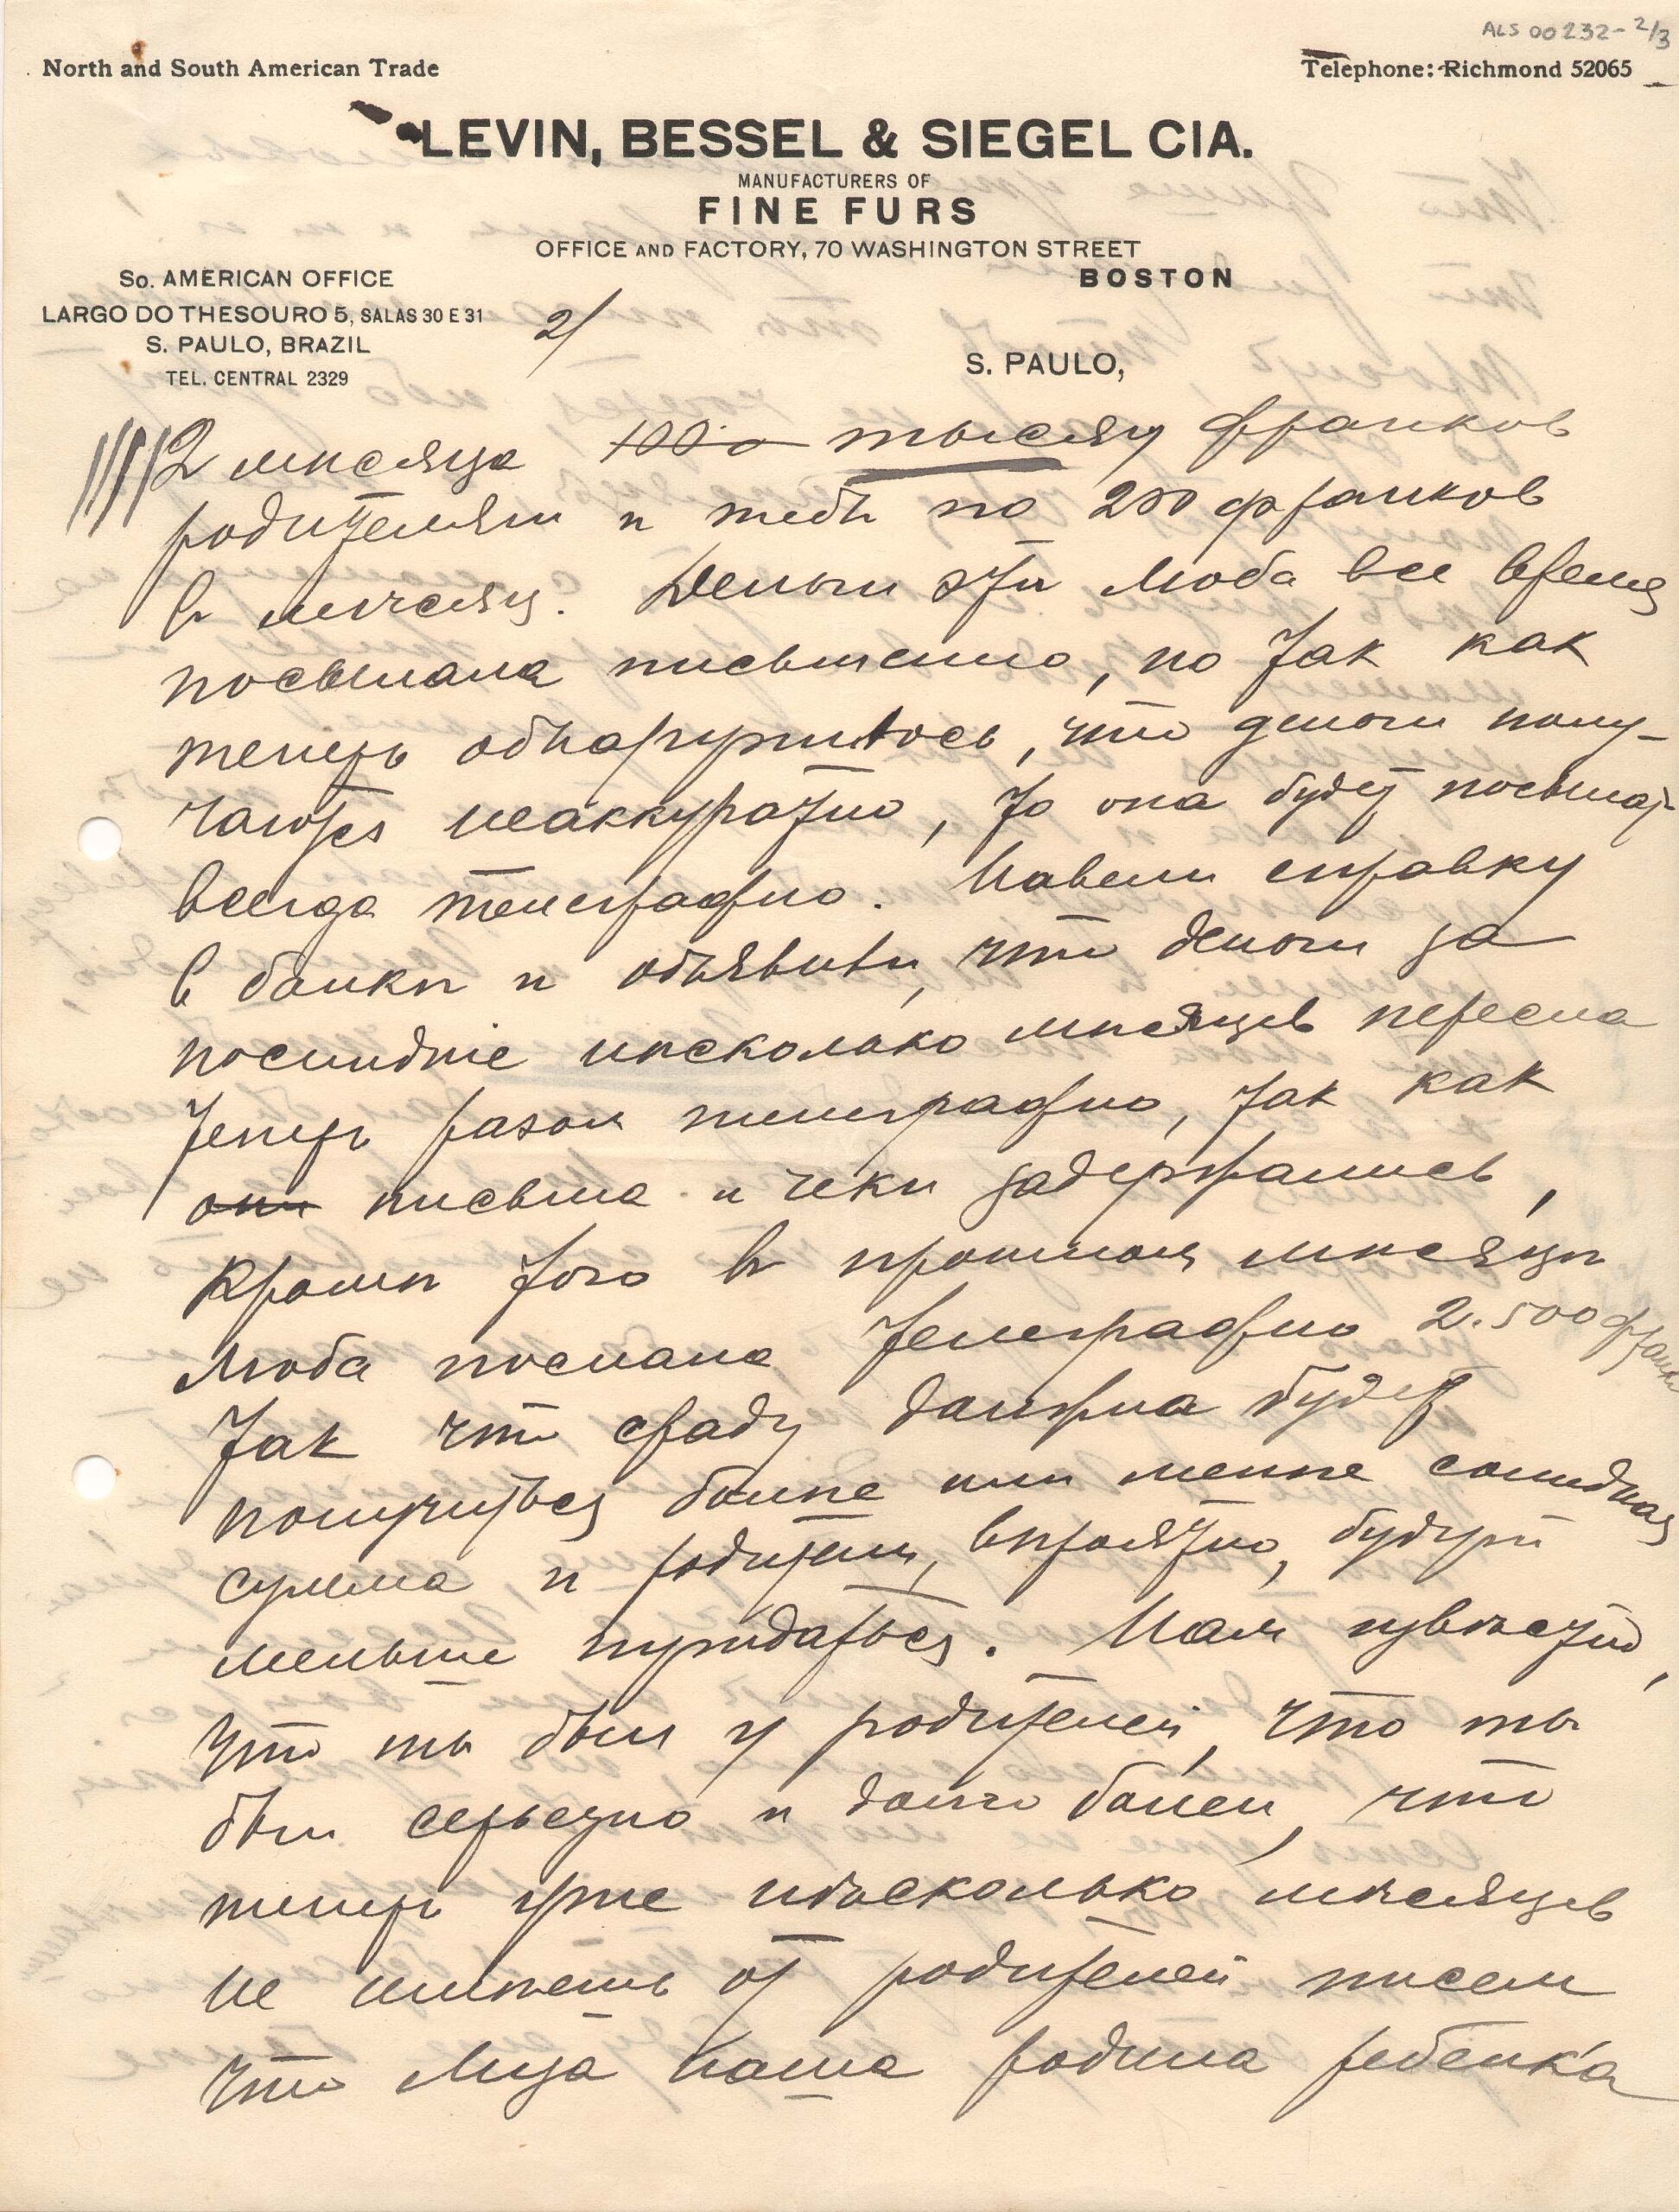 ALS 00232-2/3
North and South American Trade
Telephone: Richmond 52065
LEVIN, BESSEL & SIEGEL CIA.
MANUFACTURERS OF
FINE FURS
OFFICE AND FACTORY, 70 WASHINGTON STREET
BOSTON
So. AMERICAN OFFICE
LARGO DO THESOURO 5, SALAS 30 E 31
S. PAULO, BRAZIL
TEL. CENTRAL 2329
2/
S. PAULO,
2 мѣсяца тысячу франков
родителям и тебѣ по 200 франков
в мѣсяц. Деньги эти Люба все время
посылала письменно, но так как
теперь обнаружилось, что деньги полу-
чаются неаккуратно, то она будет посылать
всегда телеграфно. Навели справку
в банкѣ и объявили, что деньги за
послѣдніе нѣсколько мѣсяцев пересла
теперь разом телеграфно, так как
они письма и чеки задержались,
кромѣ того в прошлом мѣсяцѣ
Люба послала телеграфно 2.500 франк
так что сразу должна будет
получиться болѣе или менѣе солидная
сумма и родители, вѣроятно, будут
меньше нуждаться. Нам извѣстно,
что ты был у родителей, что ты
был серьезно и долго болен, что
теперь уже нѣсколько мѣсяцев
не имѣешь от родителей писем
что Лиза наша родила ребенка